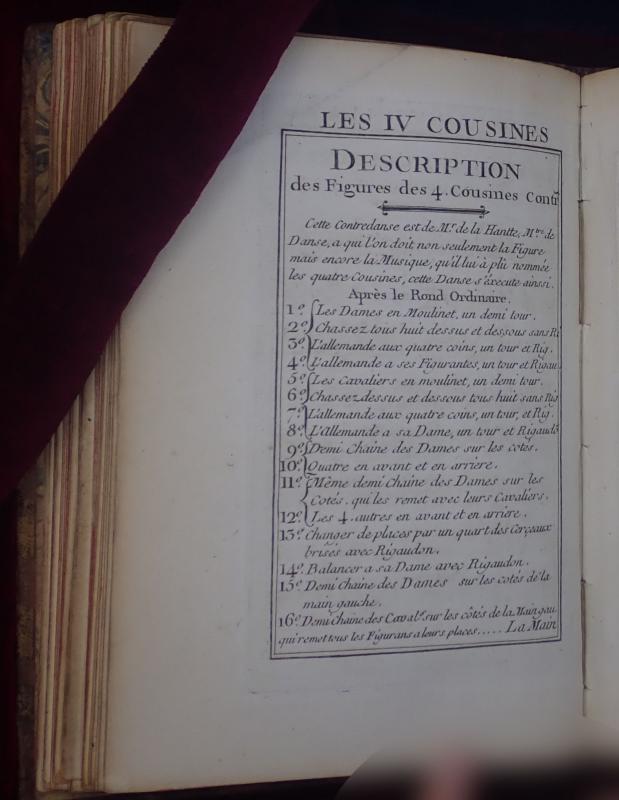 LES IV COUSINES
DESCRIPTION
des Figures des 4. Cousines Contr
Cette Contredanse est de Mr. de la Hantte, Mtre de
Danse, a qui l'on doit non seulement la Figure
mais encore la Musique, qu'il lui à plû nommée
les quatre Cousines, cette Danse s'éxecute ainsi.
Après le Rond Ordinaire.
1º. Les Dames en Moulinet, un demi tour.
2º. Chassez tous huit dessus et dessous sans Ri
3º. L'allemande aux quatre coins, un tour et Rig.
4º. L'allemande a ses Figurantes, un tour et Rigau
5º. Les Cavaliers en moulinet, un demi tour.
6º. Chassez dessus et dessous tous huit sans Rig
7º. L'allemande aux quatre coins, un tour, et Rig.
8º. L'Allemande a sa Dame, un tour et Rigaudõ
9º. Demi Chaine des Dames sur les cotés.
10º. Quatre en avant et en arriere.
11º. Même demi Chaine des Dames sur les
Cotés. qui les remet avec leurs Cavaliers.
12º. Les 4 autres en avant et en arriere.
13º. Changer de places par un quart des Cerçeaux
brisés avec Rigaudon.
14º. Balancer a sa Dame avec Rigaudon.
15º. Demi Chaine des Dames sur les cotés de la
main gauche.
16º. Demi Chaine des Caval.rs sur les côtés de la Main gau
qui remet tous les Figurans a leurs places..... La Main